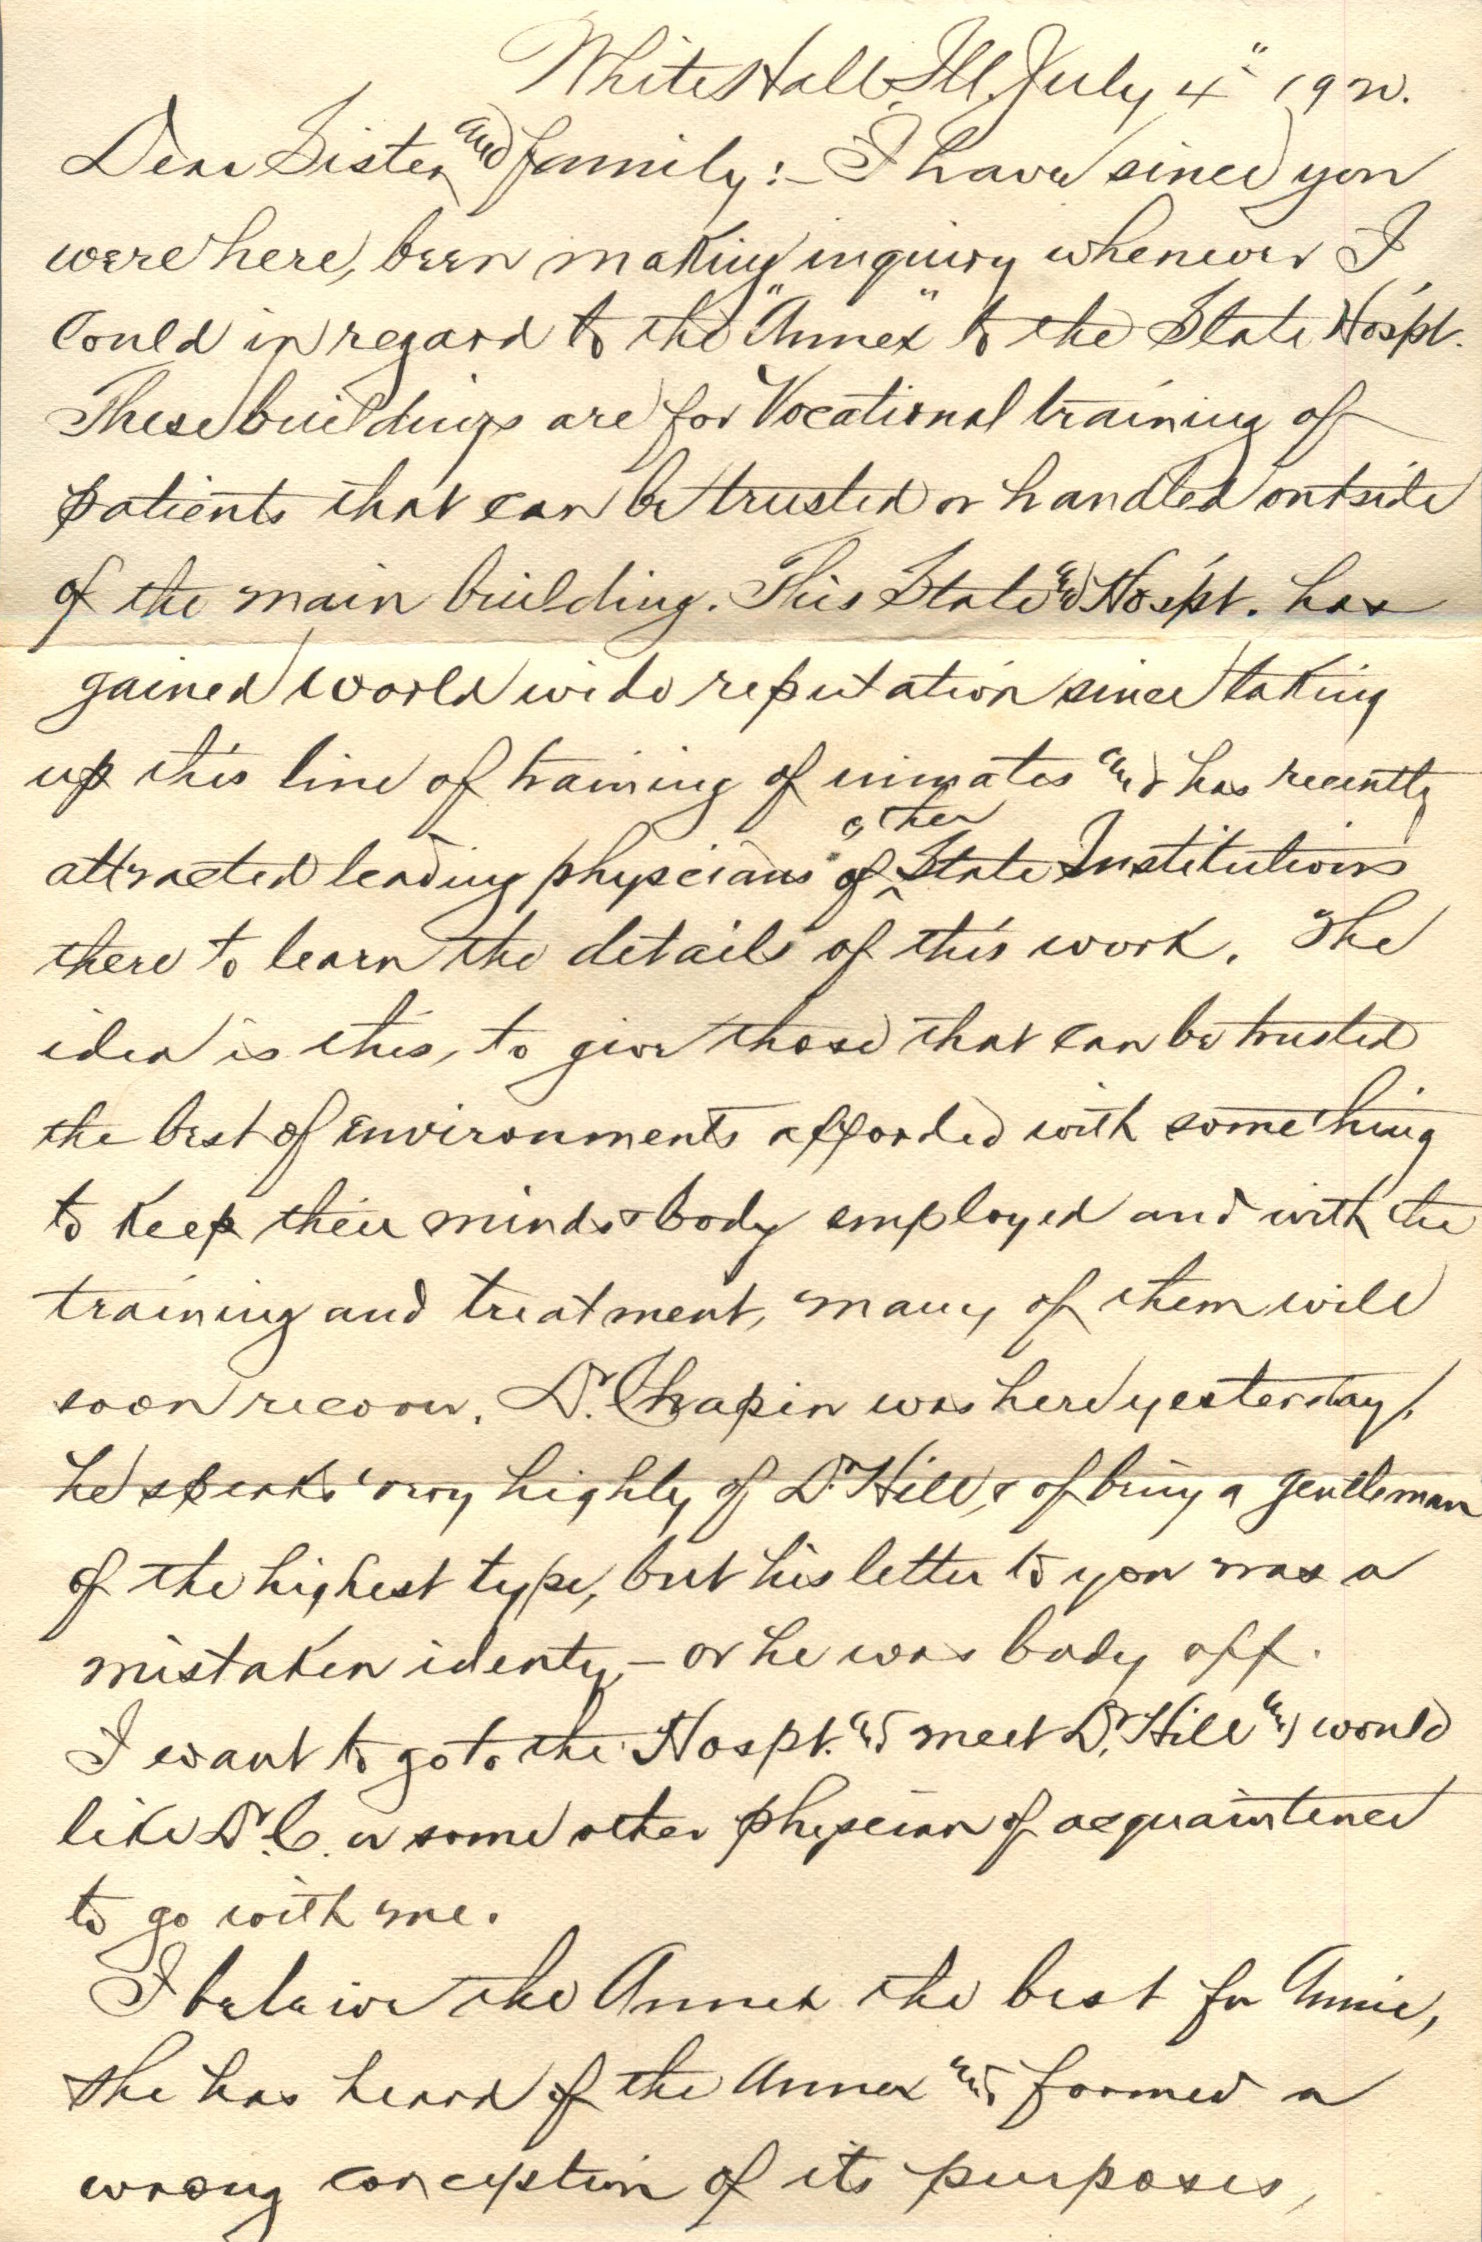 White Hall, Ill. July 4" 192
Dear Sister and family:- I have since you
were here, been making inquiry whenever I
could in regard to the "Annex" to the State Hos'pt.
These buildings are for Vocational training of
patients that can be trusted or handled outside
of the main building. This State Hos'pt. has
gained world wide reputation since taking
up this line of training of inmates and has recently
attracted leading physicians of other State Institutions
there to learn the details of this work. The
idea is this, to give those that can be trusted
the best of environments afforded with something
to keep their minds & body employed and with the
training and treatment, many of them will
soon recover. Dr. Chapin was here yesterday,
he speaks very highly of Dr. Hill, & of being a gentleman
of the highest type, but his letter to you was a
mistaken identy, - or he was bady off.
I want to go to the Hospt. and meet Dr. Hill and would
like Dr. C. or some other physician of acquaintence
to go with me.
I beleive the Annex the best for Annie,
she has heard of the Annex and formed a
wrong conception of its purposes,